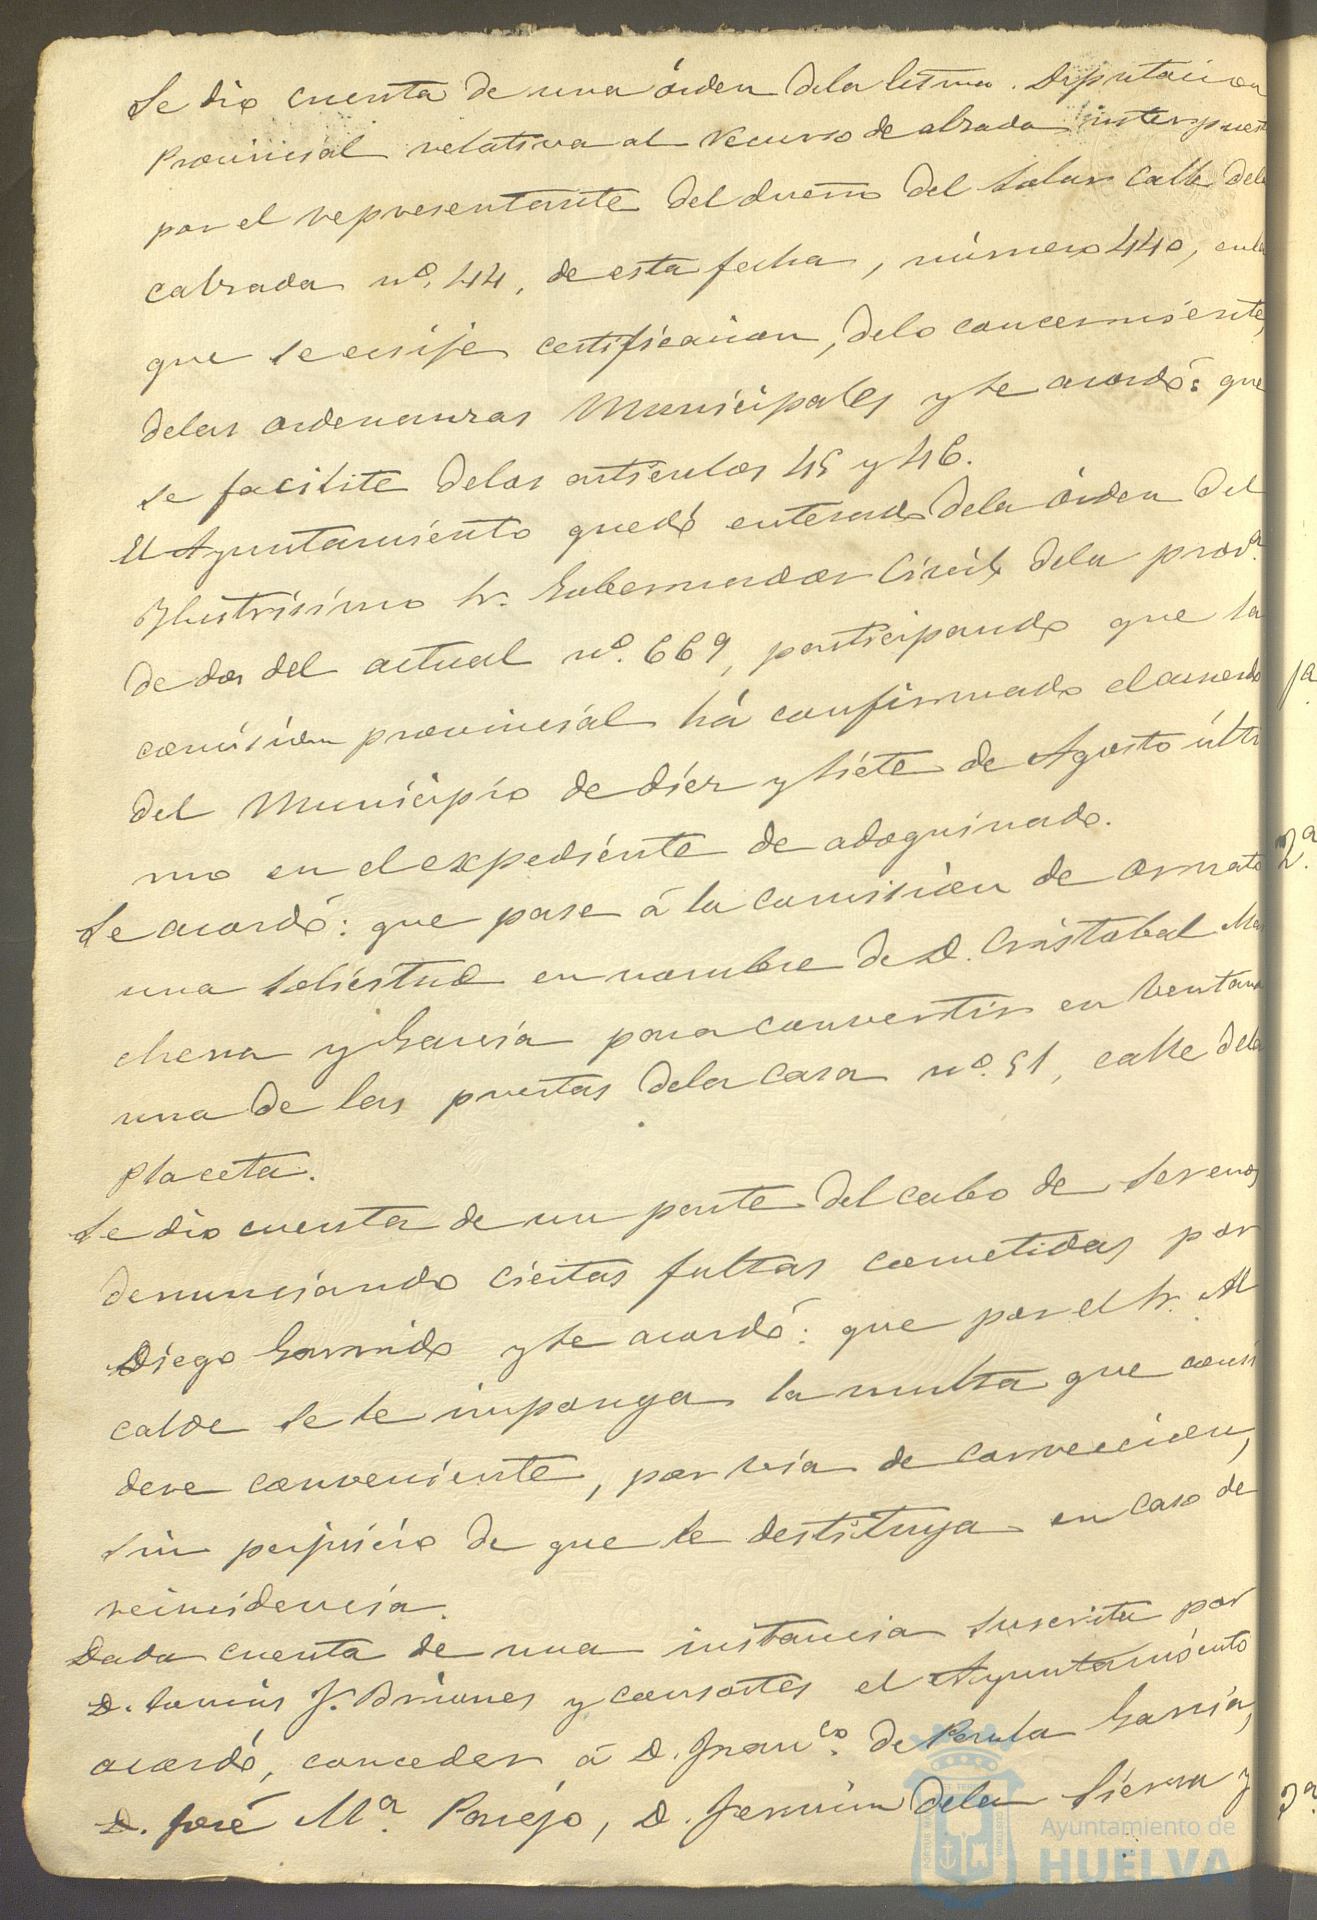 Se dio cuenta de una órden dela Iltma. Diputacion
Provincial relativa al recurso de alzada interpuest
por el representante del dueño del solar calle dela
calzada nº. 44, de esta fecha, número 440, enla
que se exije certificacion, delo concerniente,
delas ordenanzas Municipales y se acordó: que
se facilite delos artículos 45 y 46.
El Ayuntamiento quedó enterado dela órden del
Ilustrísimo Sr. Gobernador Civil dela prov.ª
de dos del actual nº. 669, participando que la
comisión provincial há confirmado elacuerdo
del Municipio de diez y siete de Agosto últi
mo en el expediente de adoquinado.
Se acordó: que pase á la comision de ornato
una solicitud en nombre de D. Cristobal Mar
chena y Garcia para convertir en ventana
una de las puertas dela casa nº. 51, calle dela
placeta.
Se dio cuenta de un parte del cabo de serenos
denunciando ciertas faltas cometidas por
Diego Garrido y se acordó: que por el Sr. Al
calde se le imponga la multa que consi
dere conveniente, por via de correccion,
sin perjuicio de que se le destituya en caso de
reincidencia.
Dada cuenta de una instancia suscrita por
D. Tomás J. Briones y consortes el Ayuntamiento
acordó, conceder á D. Fran.co de Paula Garcia,
D. José Mª. Parejo, D. Fermin dela Sierra y
1ª
2ª.
3ª.
Ayuntamiento de
HUELVA